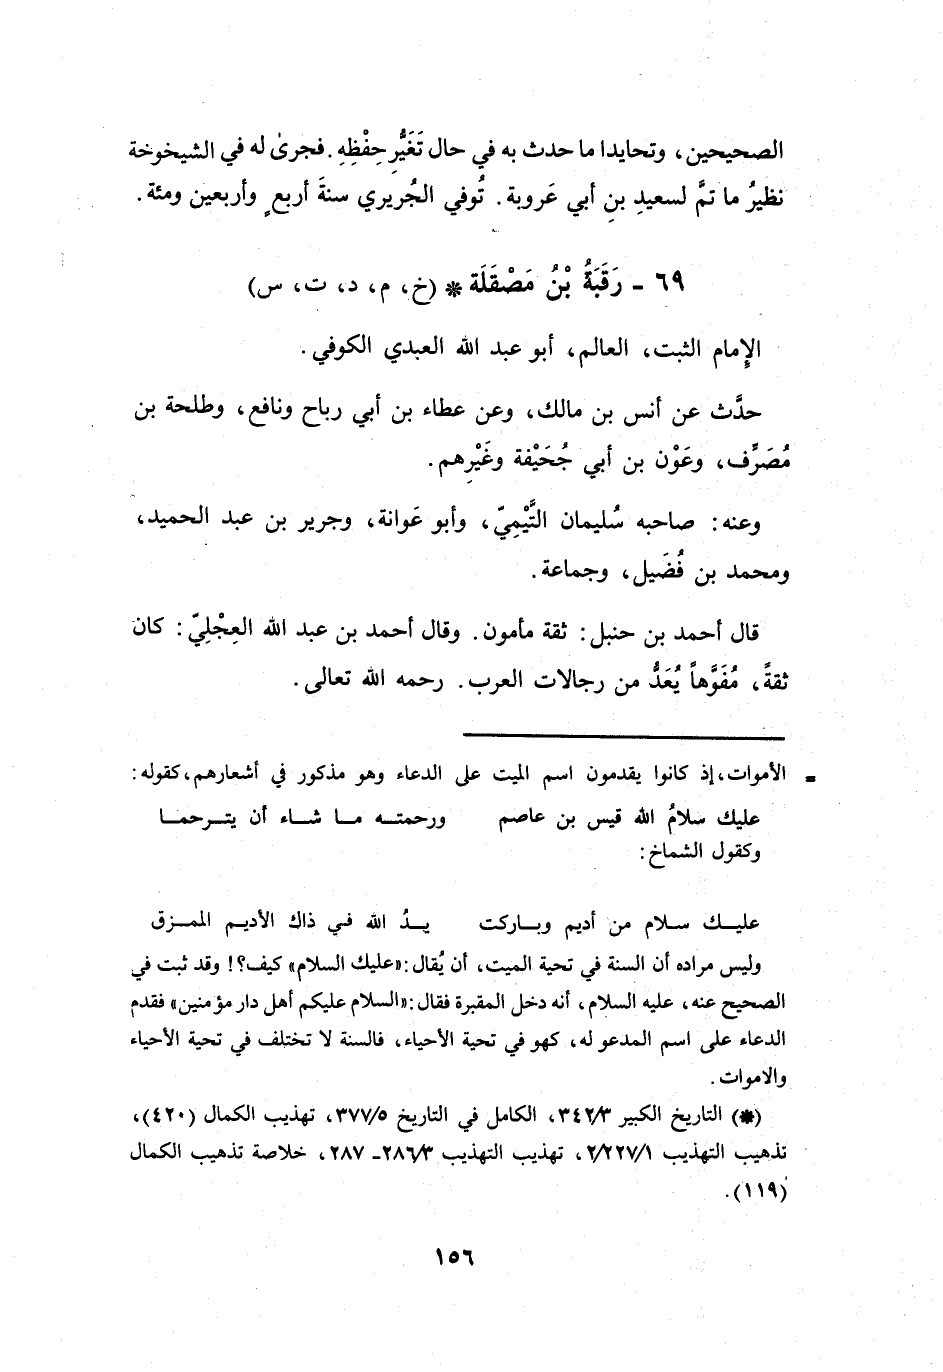 الصحيحين، وتحايدا ما حدث به في حال تَغَيُّرِ حِفْظِهِ. فجرىٰ له في الشيخوخة
نظيرُ ما تمَّ لسعيدِ بنِ أبي عَروبة. تُوفي الجُريري سنةَ أربعٍ وأربعين ومئة.
٦٩ - رَقَبَةُ بْنُ مَصْقَلَة * (خ، م، د، ت، س)
الإِمام الثبت، العالم، أبو عبد الله العبدي الكوفي.
حدَّث عن أنس بن مالك، وعن عطاء بن أبي رباح ونافع، وطلحة بن
مُصَرِّف، وعَوْن بن أبي جُحَيْفة وغَيْرِهم.
وعنه: صاحبه سُليمان التَّيْمِيّ، وأبو عَوانة، وجرير بن عبد الحميد،
ومحمد بن فُضَيل، وجماعة.
قال أحمد بن حنبل: ثقة مأمون. وقال أحمد بن عبد الله العِجْلِيّ: كان
ثقةً، مُفَوَّهاً يُعَدُّ من رجالات العرب. رحمه الله تعالى.
= الأموات، إذ كانوا يقدمون اسم الميت على الدعاء وهو مذكور في أشعارهم، كقوله:
عليك سلامُ الله قيس بن عاصم ورحمتـه مـا شـاء أن يتـرحمـا
وكقول الشماخ:
عليـك سـلام من أديم وبـاركت يـدُ الله فـي ذاك الأديـم الممـزق
وليس مراده أن السنة في تحية الميت، أن يُقال: «عليك السلام» كيف؟! وقد ثبت في
الصحيح عنه، عليه السلام، أنه دخل المقبرة فقال: «السلام عليكم أهل دار مؤمنين» فقدم
الدعاء على اسم المدعو له، كهو في تحية الأحياء، فالسنة لا تختلف في تحية الأحياء
والاموات.
(*) التاريخ الكبير ٣٤٢/٣، الكامل في التاريخ ٣٧٧/٥، تهذيب الكمال (٤٢٠)،
تذهيب التهذيب ٢/٢٢٧/١، تهذيب التهذيب ٢٨٦/٣ـ ٢٨٧، خلاصة تذهيب الكمال
(١١٩).
١٥٦